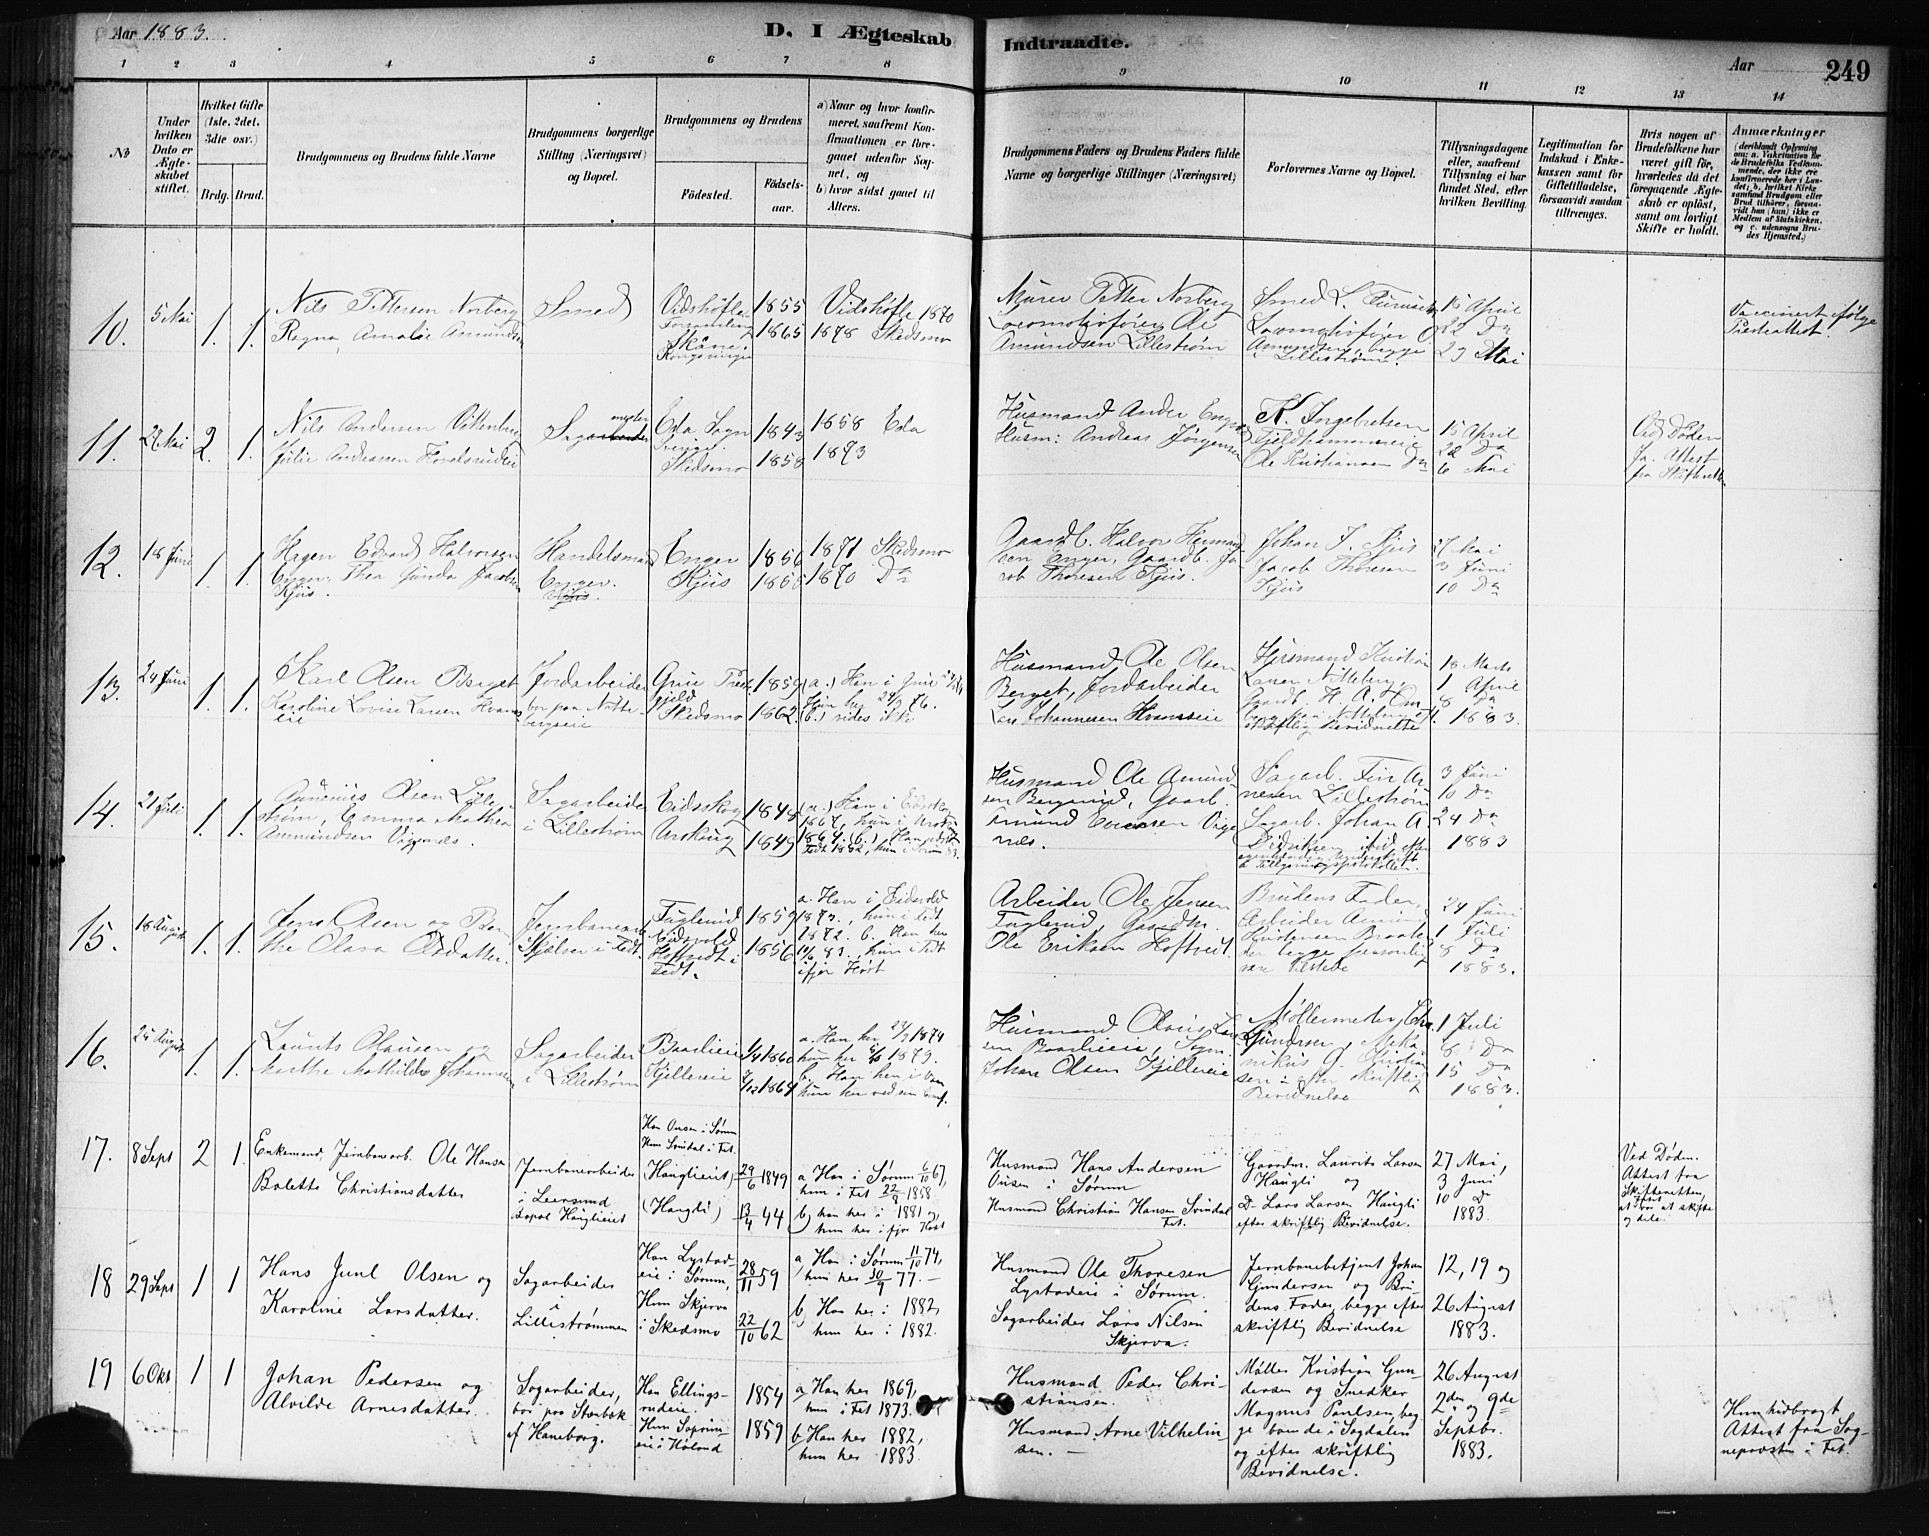 Aar 1883.
D. I Ægteskab
Indtraadte.
Aar
249
1 2 3 4 5 6 7 8
9 10 11 12 13 14
No
Under hvilken Dato er Ægteskabet stiftet.
Hvilket Gifte (1ste, 2det, 3die osv.)
Brdg. Brud.
Brudgommens og Brudens fulde Navne
Brudgommens borgerlige Stilling (Næringsvei) og Bopæl.
Brudgommens og Brudens
Fødested.
Fødselsaar.
a) Naar og hvor konfirmeret, saafremt Konfirmationen er foregaaet udenfor Sognet, og
b) hvor sidst gaaet til Alters.
Brudgommens Faders og Brudens Faders fulde Navne og borgerlige Stillinger (Næringsvei)
Forlovernes Navne og Bopæl.
Tillysningsdagene eller, saafremt Tillysning ei har fundet Sted, efter hvilken Bevilling.
Legitimation for Indskud i Enkekassen samt for Giftetilladelse, forsaavidt saadan tiltrænges.
Hvis nogen af Brudefolkene har været gift før, hvorledes da det foregaaende Ægteskab er opløst, samt om lovligt Skifte er holdt.
Anmærkninger
(deriblandt Oplysning om: a. Vakcination for de Brudefolks Vedkommende, der ikke ere konfirmerede her i Landet; b. hvilket Kirkesamfund Brudgom eller Brud tilhører, forsaavidt han (hun) ikke er Medlem af Statskirken, og c. udensogns Brudes Hjemsted.)
10. 5 Mai 1. 1.
Nils Pettersen Norberg
Ragna Amalie Amundsen
Smed
Vidshöfle
Skåne
Kongsvinger
1855
1865
Vidshöfle 1870
1878 Skedsmo
Murer Petter Norberg
Locomotivfører Ole
Amundsen Lillestrøm
Smed L.
Locomotivfører O.
Amundsen, begge
Lillestrøm.
15 April
22 Da
29 Mai
Vaccineret ifølge
Presteattest.
11. 27 Mai 2. 1.
Nils Andersen Vittenberg
Julie Andreassen
Sagmester
Eda Sogn
Sverige
Skedsmo
1843
1858
1858 Eda
1873
Husmand Ander
Husm: Andreas Jørgensen
K. Ingebretsen
Fjeldhammereie
Ole Kristiansen Da
15 April
22 Da
6 Mai
Ved Døden
fra Skifteretten
12. 18 Juni 1. 1.
Hagen Edvard Halvorsen
Enger, Thea Gunda Jacobsen
Kjus.
Handelsmand
Enger.
Enger
Kjus
1856
1855
1871 Skedsmo
1870 Da
Gaardb. Halvor Herman
sen Enger, Gaardb. Ja
cob Thoresen Kjus.
Johan J. Kjus
Jacob Thoresen
Kjus
27 Mai
3 Juni
10 Da
13. 24 Juni 1. 1.
Karl Olsen Berget
Karoline Lovise Larsen Hvams
eie
Jordarbeider
bor paa Nitte
bergseie
Grue Prest
gjeld
Skedsmo
1859
1862.
(a.) Han i Grue
Hun her 24/9 76.
(b.) sides ikke
Husmand Ole Olsen
Berget, Jordarbeider
Lars Johannesen Hvamseie
Husmand Kristian
Larsen Nitteberg,
Gaardb. H. A.
skriftlig Bevidnelse
18 Marts
1 April
8 Da
1883.
14. 21 Juli 1. 1.
Antonius Olsen Lille
strøm, Emma Mathea
Ammundsen Vignæs.
Sagarbeider
i Lillestrøm
Eidsskog
Urskoug
1845
1849
(a.) Han i Eidsskog
1864. (b.) Han
Husmand Ole Amund
sen Bergerud, Gaarb.
Amund Evensen Vig
næs.
Sagarb. Fin Ar
nesen Lillestrøm
Sagarb. Johan A.
3 Juni
10 Da
24 Da
1883
15. 18 August 1. 1.
Jens Olsen og Ber
the Olava Olsdatter.
Jernbanearb.
Skjetten i Fedt.
Fuglerud
Eidsvold
Hoftvedt i
Fedt.
1859
1856
a. Han i Eidsvold
1873, hun i Fedt
1872. b. Han her
hun i Fedt
ifjor Høst
Arbeider Ole Jensen
Fuglerud, Gaardm.
Ole Eriksen Hoftvedt
Brudens Fader,
Arbeider
Kristensen Braate
der begge personlig
vare tilstede
24 Juni
1 Juli
8 Da
1883.
16. 25 August 1. 1.
Laurits Olausen og
Marthe Mathilde Johannesen
Sagarbeider
i Lillestrøm
Braalieie
Kjellereie
1/4 1860
7/12 1864
a. Han her 27/9 1874
hun her 5/10 1879.
b. Han her i Vaar
Husmand Olaus Lars
sen Braalieie, Sagm.
Johan Olsen Kjellereie
Møllemester Chr.
Gundersen, Meka
nikus G. Christian
sen efter skriftlig
Bevidnelse
1 Juli
8 Da
15 Da
1883.
17. 8 Sept 2 1.
Enkemand, Jernbanearb. Ole Hansen
Bolette Christiansdatter
Jernbanearbeider
i Leersund
Bopæl Haugliciet
Han Onsen i Sørum
Hun Svindal i Fet.
(Haugliciet)
(Haugli)
29/6 1849
13/4 44
a Han i Sørum 6/10 67,
hun i Fet 22/8 1858.
b) han her i 1881 og
hun her i fjor Høst
Husmand Hans Andersen
Onsen i Sørum
Husmand Christian Hansen Svindal
Fet.
Gaardm. Laurits Larsen
Haugli og
Do Lars Larsen Haugli
efter skriftlig Bevidnelse.
27 Mai,
3 Juni
10 Da
1883.
Ved Døden.
Attest fra
Skifteretten,
at Intet
var at skifte
og dele.
18 29 Sept 1 1
Hans Juul Olsen og
Karoline Larsdatter.
Sagarbeider
i
Lillestrømmen
Han Lystad-
eie i Sørum,
Hun Skjerva
i Skedsmo
28/11 59
22/10 62
a, Han i Sørum 11/10 74,
hun her 30/9 77. –
b, Han her i 1882,
hun her i 1882.
Husmand Ole Thoresen
Lystadeie i Sørum.
Sagarbeider Lars Nilsen
Skjerva.
Jernbanebetjent Johan
Gundersen og Bru-
dens Fader, begge efter
skriftlig Bevidnelse
12, 19 og
26 August
1883.
19 6 Okt 1 1
Johan Pedersen og
Alvilde Arnesdatter.
Sagarbeider,
bor paa Stenbæk
af Haneborg.
Han Ellings-
rudeie.
Hun Soprim-
eie i Høland
1854
1859
a Han her 1869,
hun i Fet 1873.
b Han her 1882,
hun her 1883.
Husmand Peder Chri-
stiansen.
Husmand Arne Vilhelm-
sen. –
Møller Kristian Gun-
dersen og Snedker
Magnus Paulsen, beg-
ge boende i Sagdalen
og efter skriftlig
Bevidnelse.
26 August
2den og 9de
Septbr.
1883.
Hun hidbragt
Attest fra Sog-
nepresten i Fet.